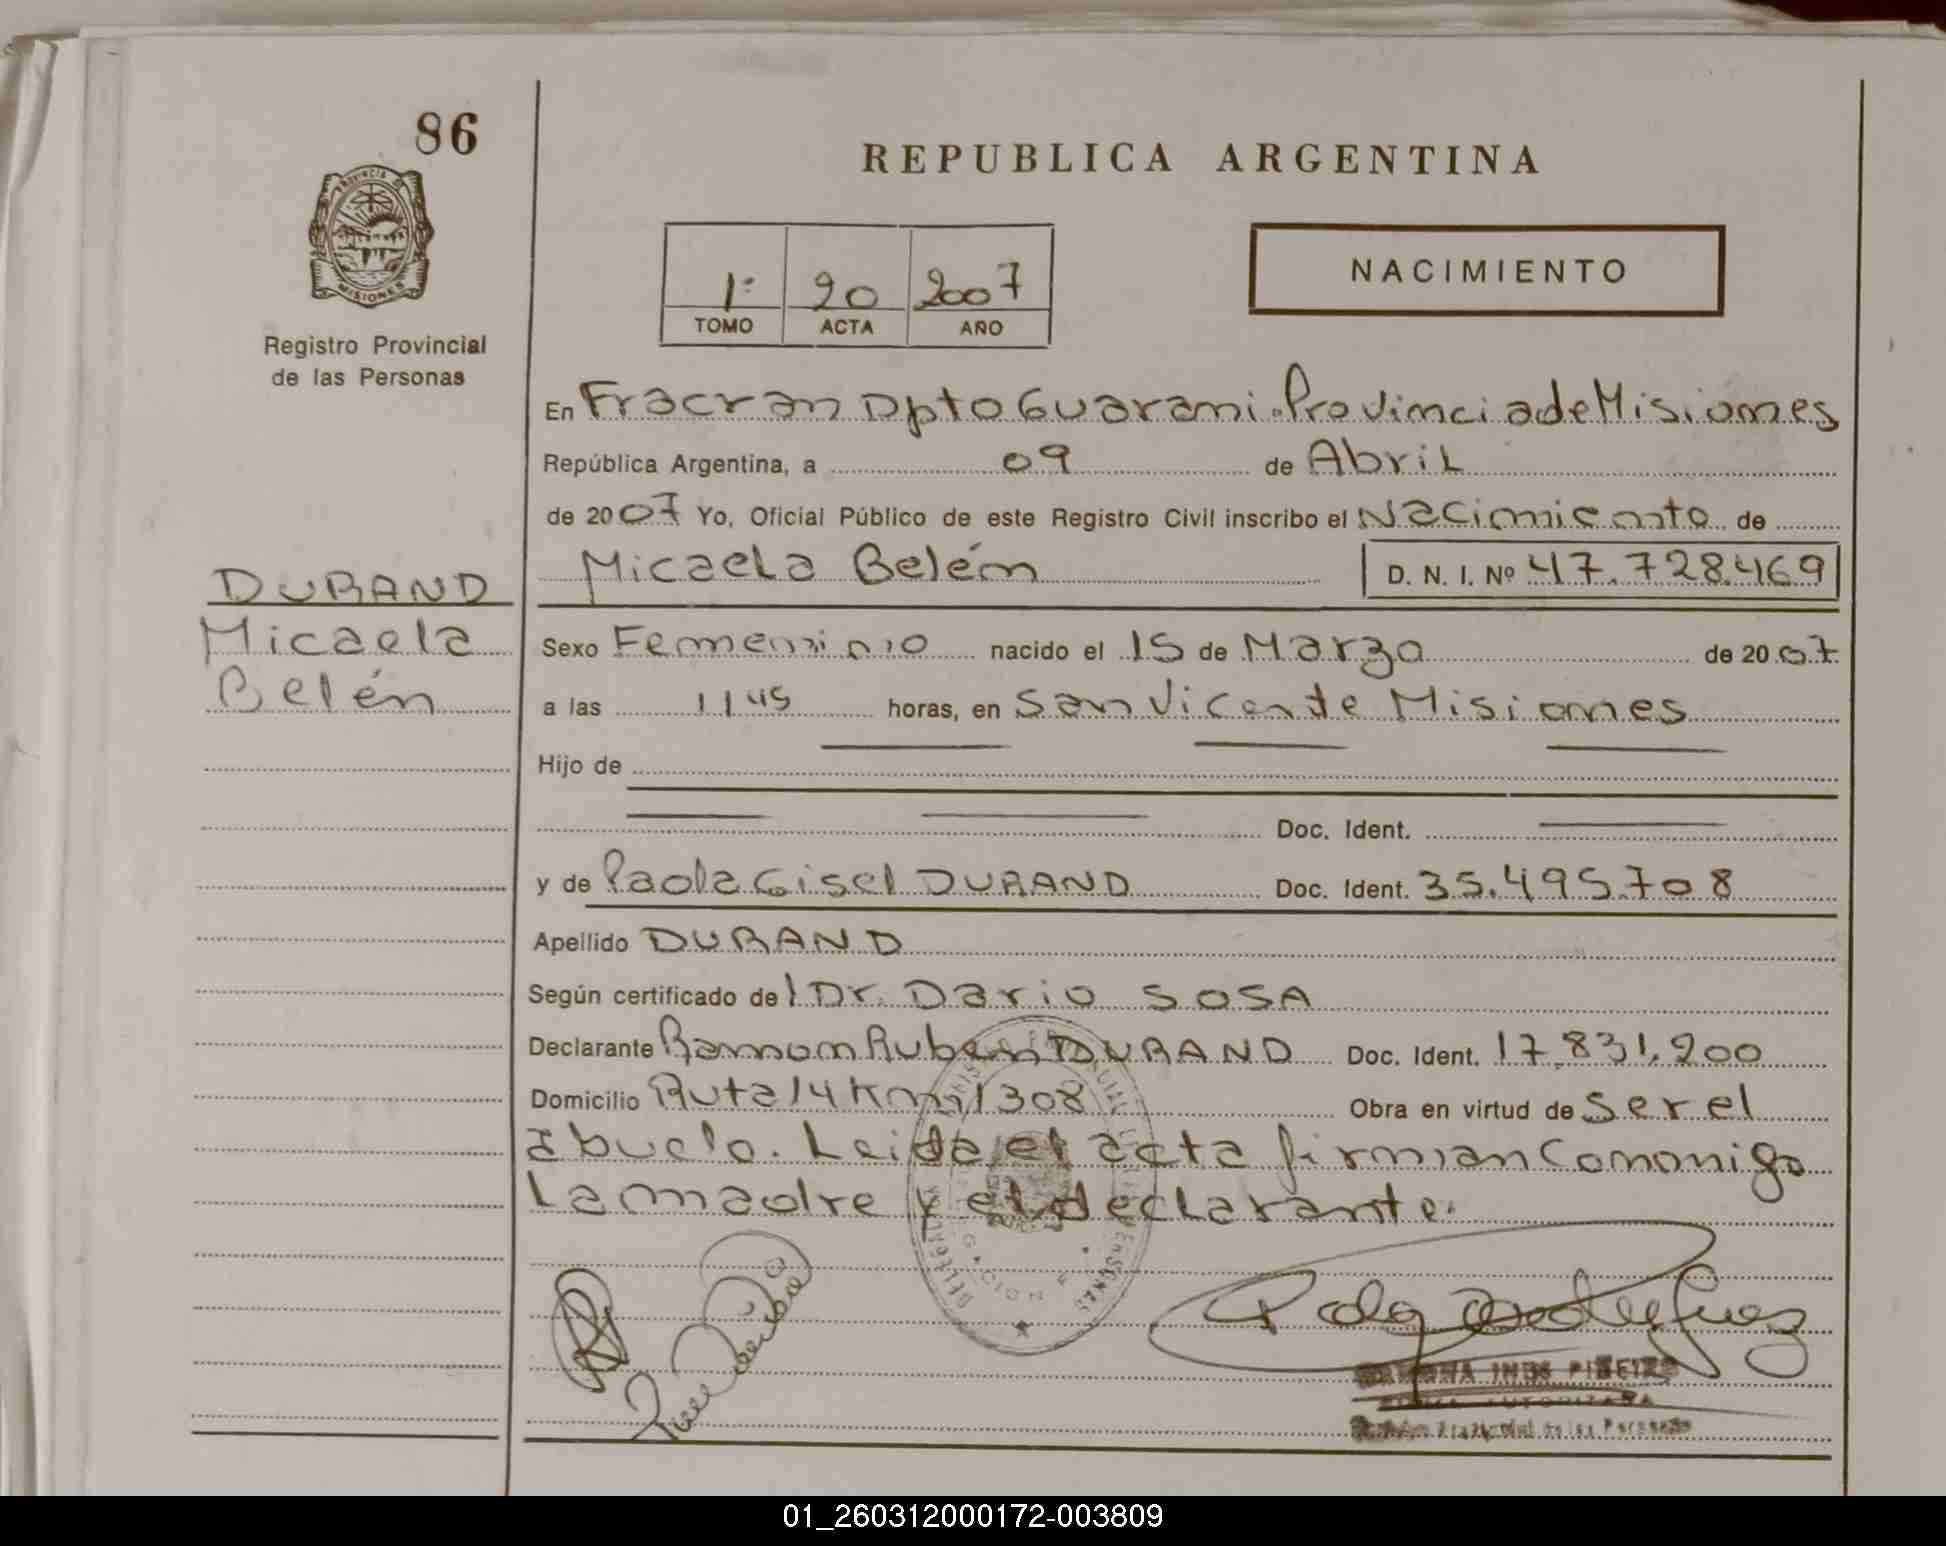 86
REPUBLICA ARGENTINA
PROVINCIA DE
MISIONES
Registro Provincial
de las Personas
1º 90 2007
TOMO ACTA AÑO
NACIMIENTO
En Fracran Dpto Guarani. Provincia de Misiones
República Argentina, a 09 de Abril
de 2007 Yo, Oficial Público de este Registro Civil inscribo el Nacimiento de
DURAND
Micaela Belén
Micaela Belén D. N. I. Nº 47.728.469
Sexo Femenino nacido el 15 de Marzo de 2007.
a las 1145 horas, en San Vicente Misiones
Hijo de
Doc. Ident.
y de Paola Gisel DURAND Doc. Ident. 35.495.708
Apellido DURAND
Según certificado del Dr. Dario SOSA
Declarante Ramon Ruben DURAND Doc. Ident. 17.831.200
Domicilio Ruta 14 Km 1308 Obra en virtud de ser el
abuelo. Leida el acta firman Conmigo
La madre y el declarante.
01_260312000172-003809